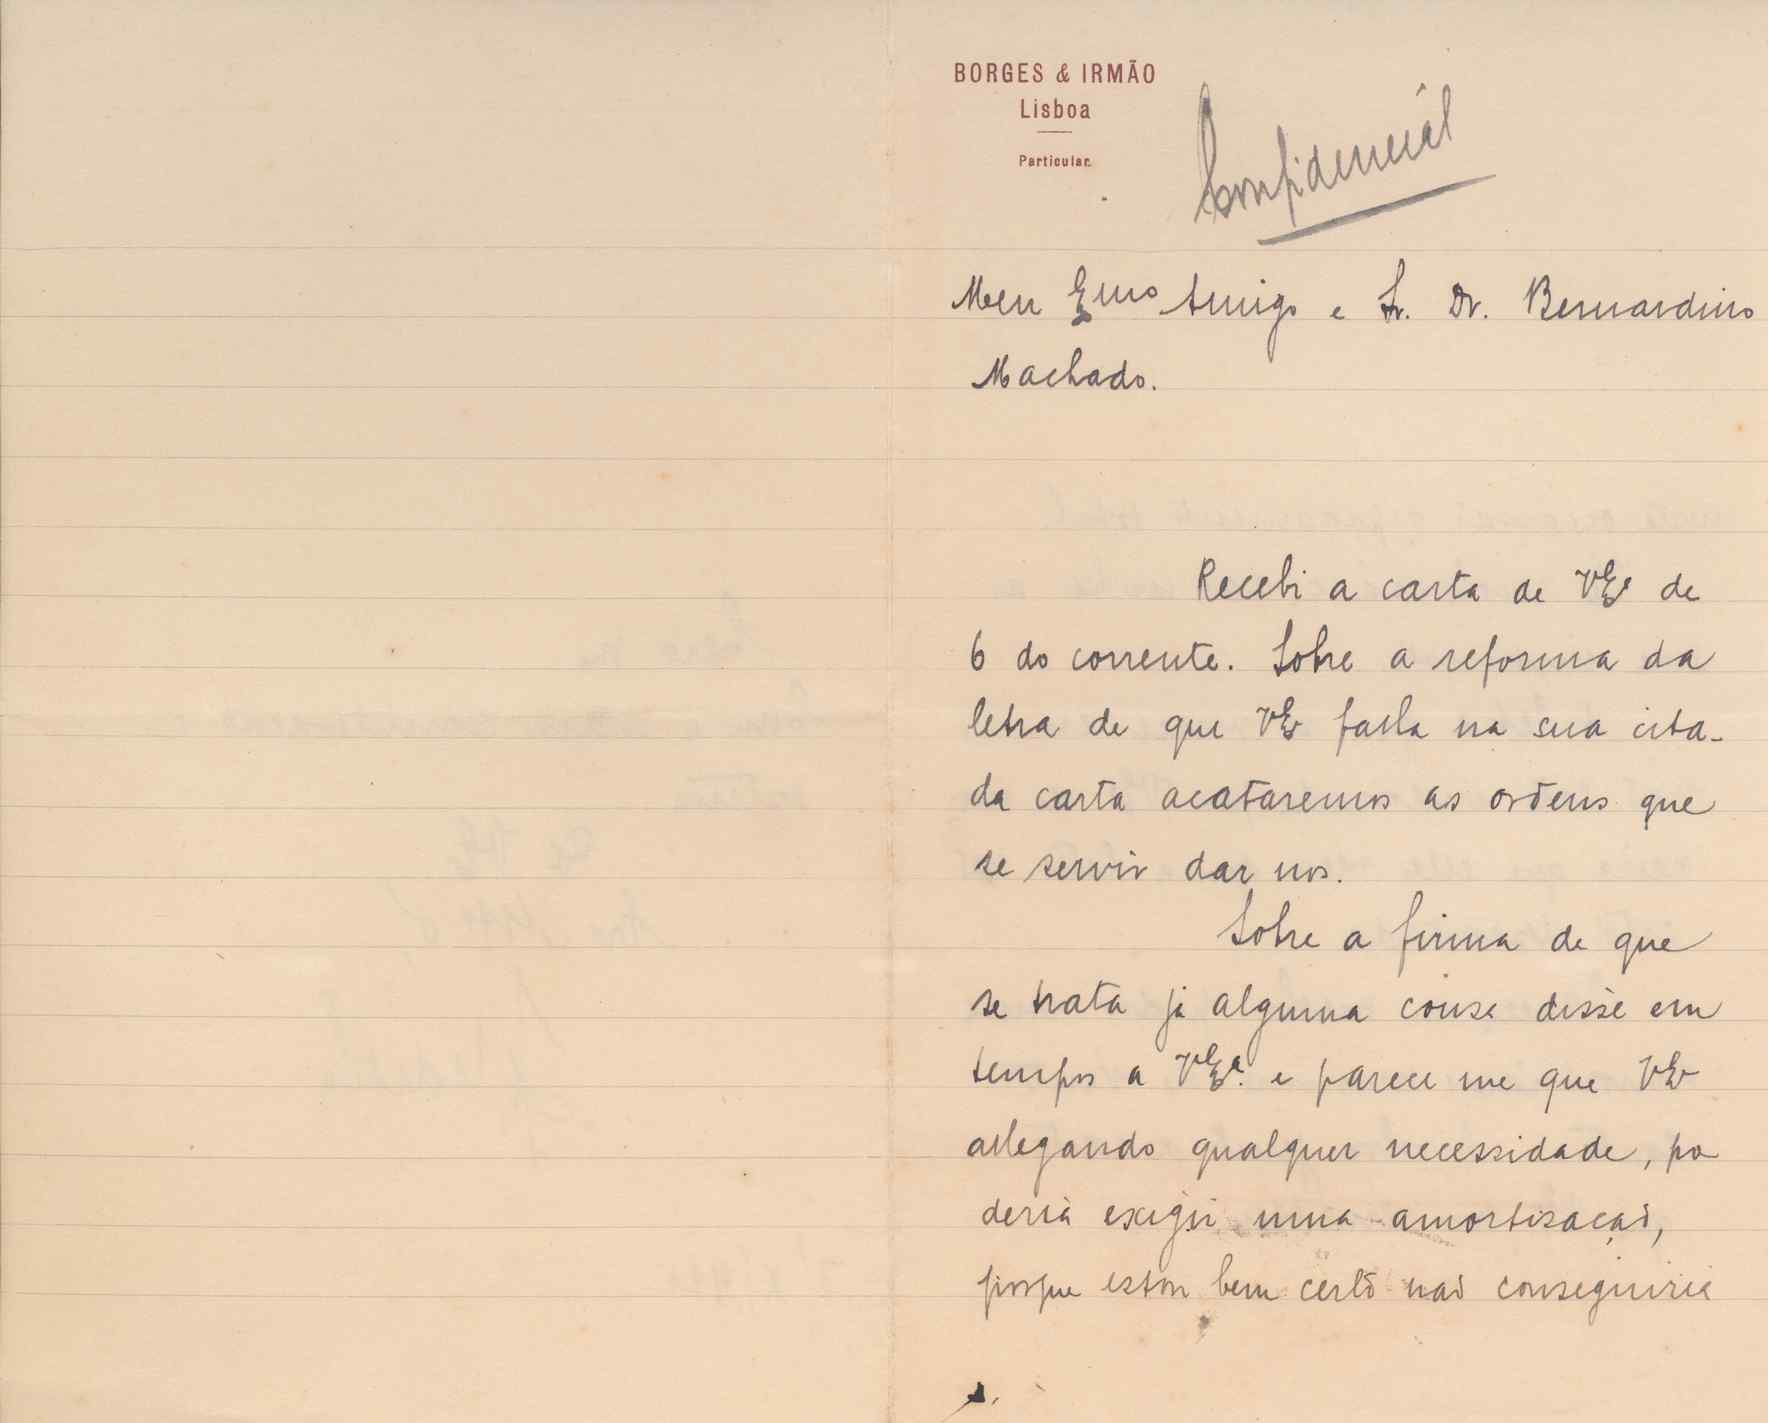 BORGES & IRMÃO
Lisboa
Particular.
Confidencial
Meu Exmo Amigo e Sr. Dr. Bernardino
Machado.
Recebi a carta de VExa de
6 do corrente. Sobre a reforma da
letra de que VExa falla na sua cita-
da carta acataremos as ordens que
se servir dar nos.
Sobre a firma de que
se trata já alguma cousa disse em
tempos a VExa. e parece me que VExa
allegando qualquer necessidade, po
deria exigir uma amortisação,
porque estou bem certo não conseguiria